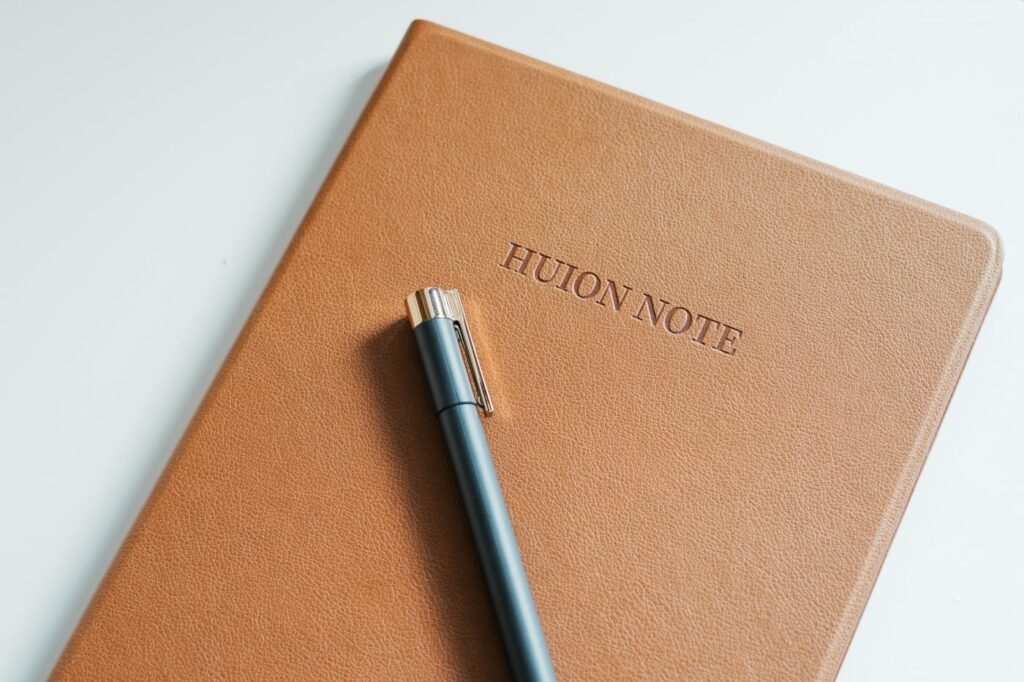 HUION NOTE